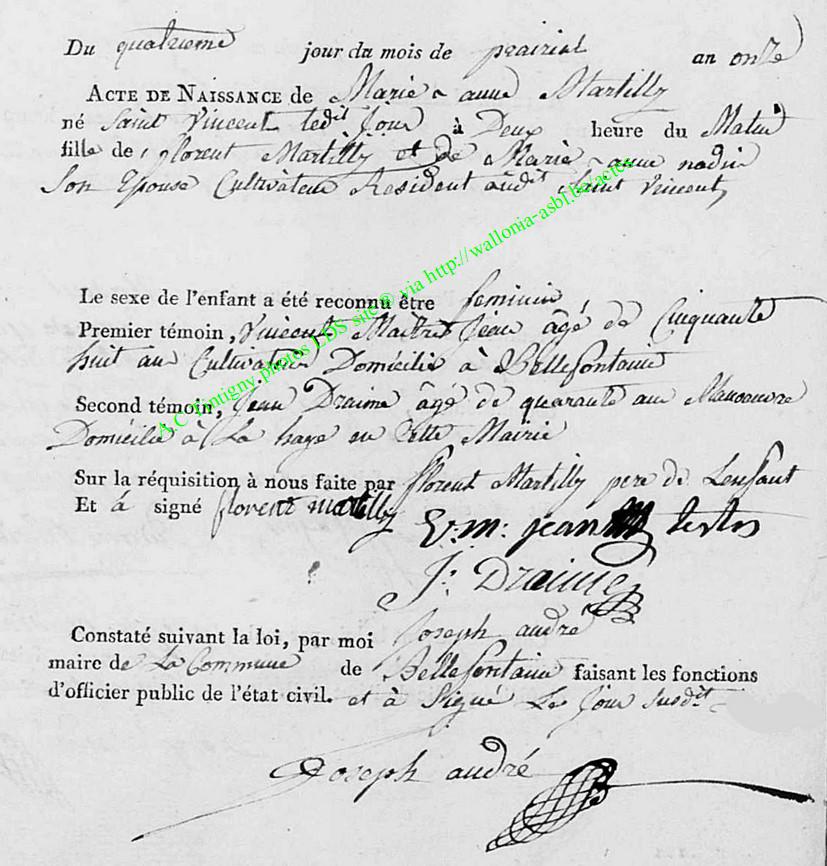 Du quatrieme jour du mois de prairial an onze
ACTE DE NAISSANCE de Marie-anne Martilly
né Saint Vincent ledit Jour à Deux heure du Matin
fille de florent Martilly et de Marie-anne nodin
Son Epouse Cultivateur Resident audit Saint Vincent
Le sexe de l'enfant a été reconnu être feminin
Premier témoin, Vincent Maitre Jean âgé de Cinquante
huit an Cultivateur Domicilié à Bellefontaine
Second témoin, Jean Draime âgé de quarante an Manoeuvre
Domicilié à La hage en Cette Mairie
Sur la réquisition à nous faite par florent Martilly pere de Lenfant
Et á signé florent martilly
V: m: jean
J: Draime
Constaté suivant la loi, par moi Joseph andré
maire de La Commune de Bellefontaine faisant les fonctions
d'officier public de l'état civil. et à Signé Le Jour susdit
Joseph andré
A.C. Tintigny photos LDS site® via http://wallonia-asbl.be/actes